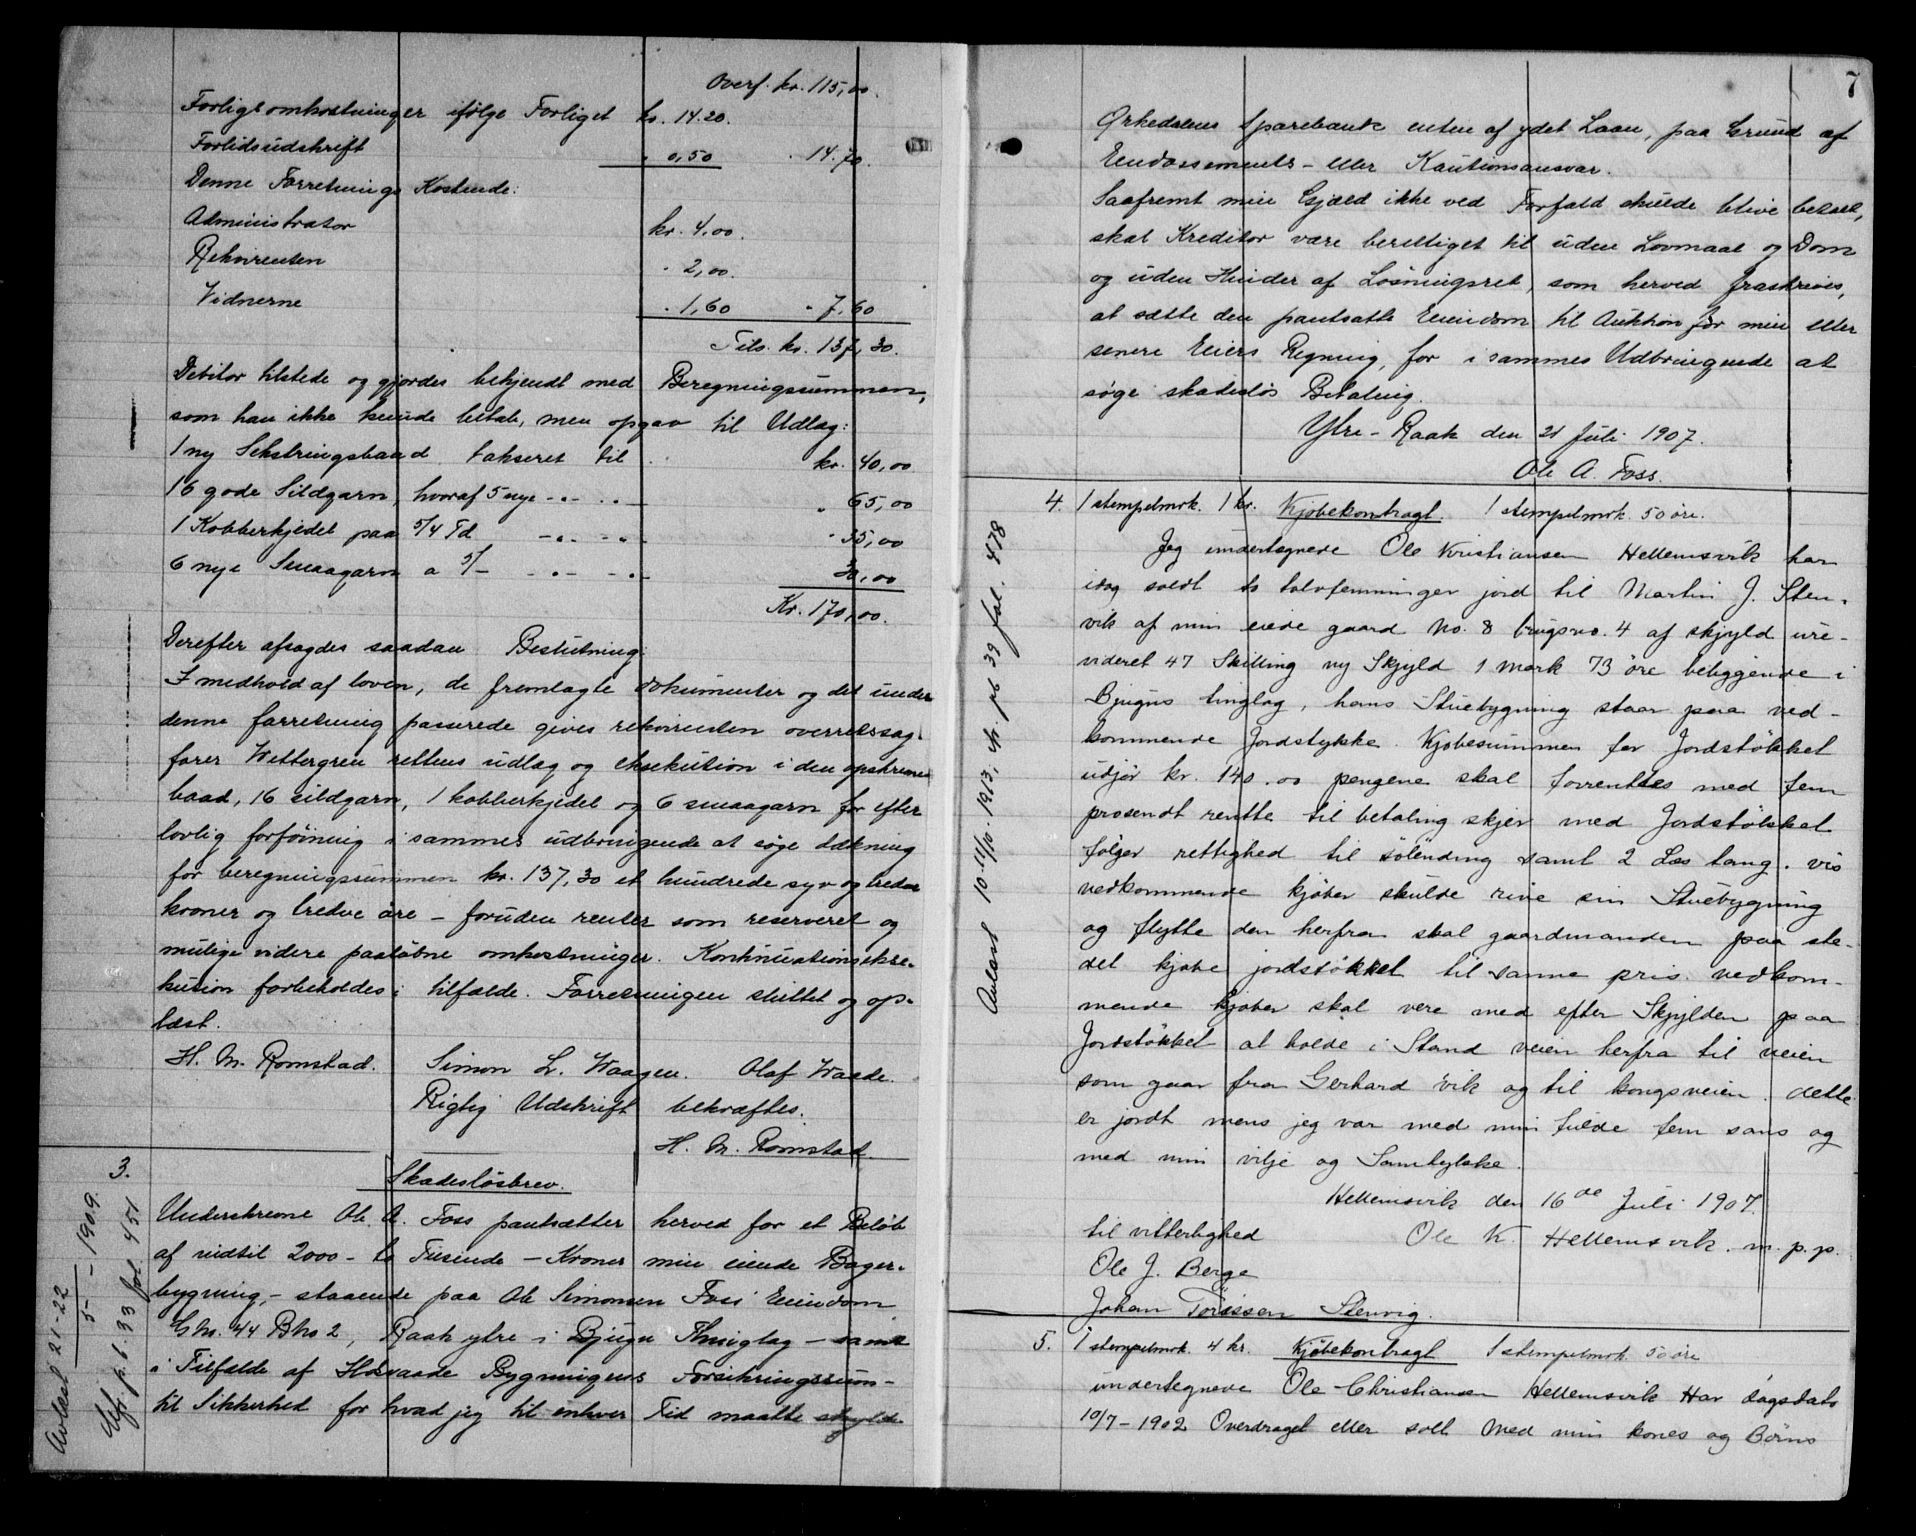 Overf. kr. 115,00.
Forligsomkostninger ifölge Forliget kr. 14.20.
Forlidsudskrift " 0,50 " 14.70.
Denne Forretnings Kostende:
Administrator kr. 4,00.
Rekvirenten " 2,00.
Vidnerne " 1,60 " 7,60
Tils. kr. 137,30.
Debitor tilstede og gjordes bekjendt med Beregningsummen,
som han ikke kunde betale, men opgav til Udlæg:
1 ny Sekstringsbaad takseret til kr. 40,00
16 gode Sildgarn, hvoraf 5 nye -"- -"- " 65,00
1 Kobberkjedel paa 5/4 Td -"- -"- " 35,00
6 nye Smaagarn a 5/- -"- -"- 30,00
Kr. 170,00.
Derefter afsagdes saadan Beslutning:
I medhold af loven, de fremlagte dokumenter og det under
denne forretning passerede gives rekvirenten overretssag-
fører Wettergren rettens udlæg og eksekution i den opskrevne
baad, 16 sildgarn, 1 kobberkjedel og 6 smaagarn for efter
lovlig forföining i sammes udbringende at söge dækning
for beregningssummen kr. 137,30 et hundrede syv og tredve
kroner og tredve öre - foruden renter som reserveret og
mulige videre paalöbne omkostninger. Kontinuationsekse-
kution forbeholdes i tilfælde. Forretningen sluttet og op-
læst.
H. M. Romstad. Simon L. Waagen. Olaf Waade.
Rigtig Udskrift bekræftes.
H. M. Romstad.
3. Skadeslösbrev.
Avlæst 21-22/5 - 1909.
Exfr. p.b. 33 fol. 451
Underskrevne Ole A. Foss pantsætter herved for et Belöb
af indtil 2000 - to Tusinde - Kroner min eiende Bager-
bygning, - staaende paa Ole Simonsen Foss' Eiendom
Gno. 44 Bno 2, Raak ytre i Bjugn Thinglag - samt
i Tilfælde af Ildsvaade Bygningens Forsikringssum -
til Sikkerhed for hvad jeg til enhver Tid maatte skylde
7
Ørkedalens Sparebank enten af ydet Laan, paa Grund af
Endossements- eller Kautionsansvar.
Saafremt min Gjæld ikke ved Forfald skulde blive betalt,
skal Kreditor være berettiget til uden Lovmaal og Dom
og uden Hinder af Løsningsret, som herved fraskrives,
at sætte den pantsatte Eiendom til Auktion for min eller
senere Eiers Regning, for i sammes Udbringende at
søge skadesløs Betaling.
Ytre-Raak den 21 Juli 1907.
Ole A. Foss.
4. 1 stempelmrk. 1 kr. Kjøbekontragt. 1 stempelmrk. 50 öre.
Avlæst 10-11/10. 1913, exfr. pb 39 fol. 478
Jeg undertegnede Ole Kristiansen Hellemsvik har
idag soldt to tolvfemninger jord til Martin J. Sten-
vik af min eiede gaard No. 8 brugsno. 4 af skjyld ure-
videret 47 Skilling ny Skjyld 1 mark 73 öre beliggende i
Bjugns tinglag, hans Stuebygning staar paa ved-
kommende Jordstykke. Kjøbesummen for Jordstökket
udjör kr. 140.00 pengene skal forrenttes med fem
prosendt rentte til betaling skjer med Jordstökket
følger rettighed til sölending samt 2 Læs tang. vis
vedkommende kjøber skulde rive sin Stuebygning
og flytte den herfra skal gaardmanden paa ste-
det kjøbe jordstökket til samme pris. vedkom-
mende kjøber skal vere med efter Skjylden paa
Jordstökket at holde i Stand veien herfra til veien
som gaar fra Gerhard vik og til kongsveien. dette
er jordt mens jeg var med min fulde fem sans og
med min vilje og Samtykke.
Hellemsvik den 16de Juli 1907.
til vitterlighed Ole K. Hellemsvik. m. p. p.
Ole J. Berge
Johan Torissen Stenvig.
5. 1 stempelmrk. 4 kr. Kjöbekontragt 1 stempelmrk. 50 öre
undertegnede Ole Christiansen Hellemsvik Har dagsdato
10/7-1902 Overdraget eller solt Med min kones og Børns